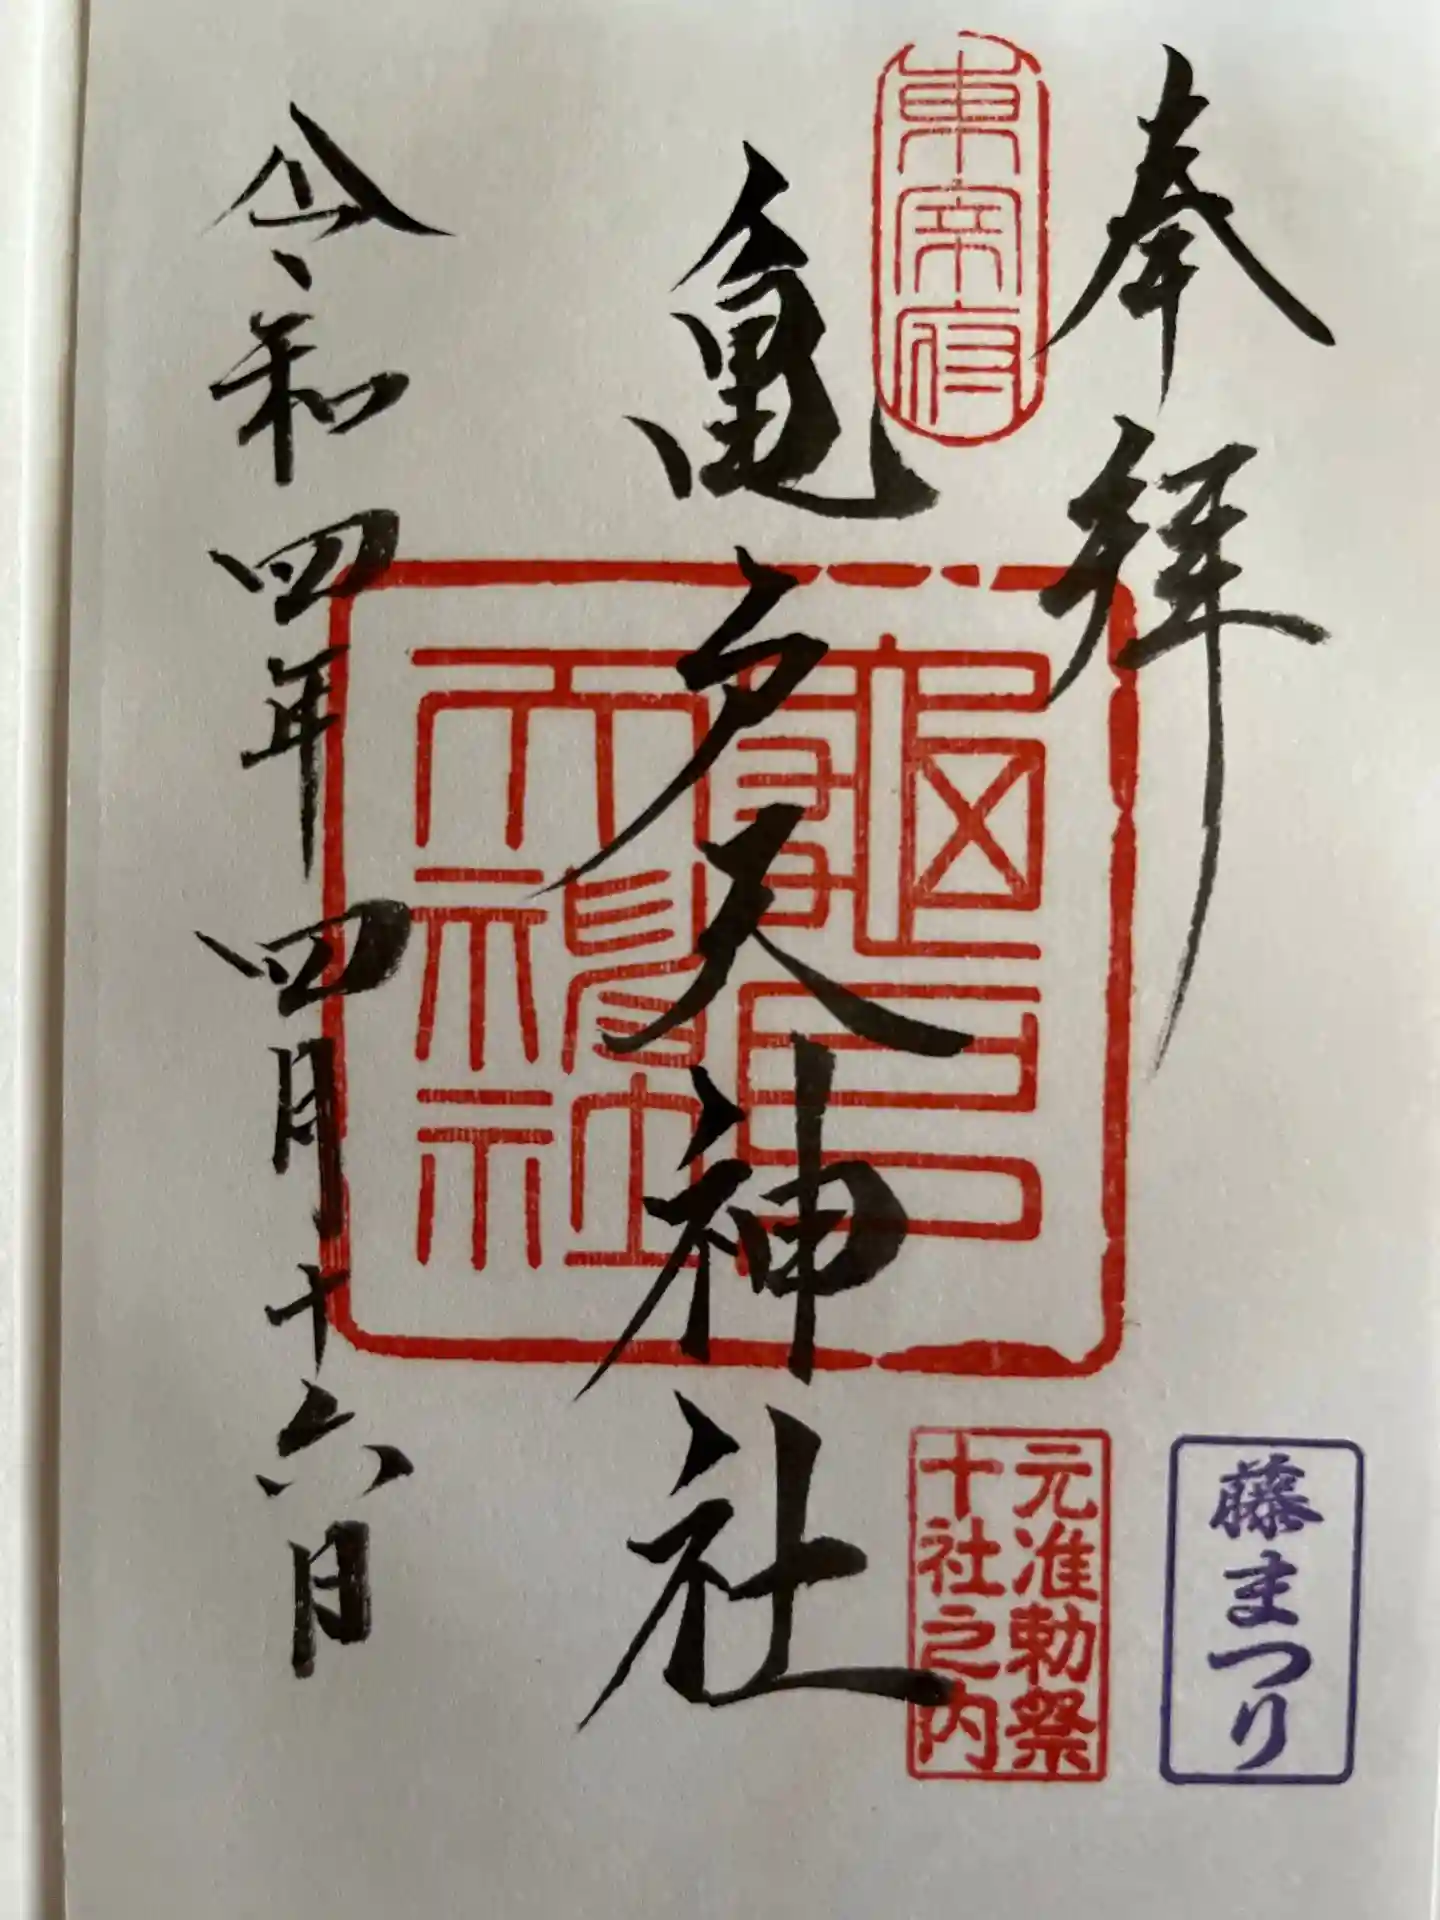 奉拝
東宰府
亀戸天神社
亀戸天神社
令和四年四月十六日
元准勅祭
十社之内
藤まつり